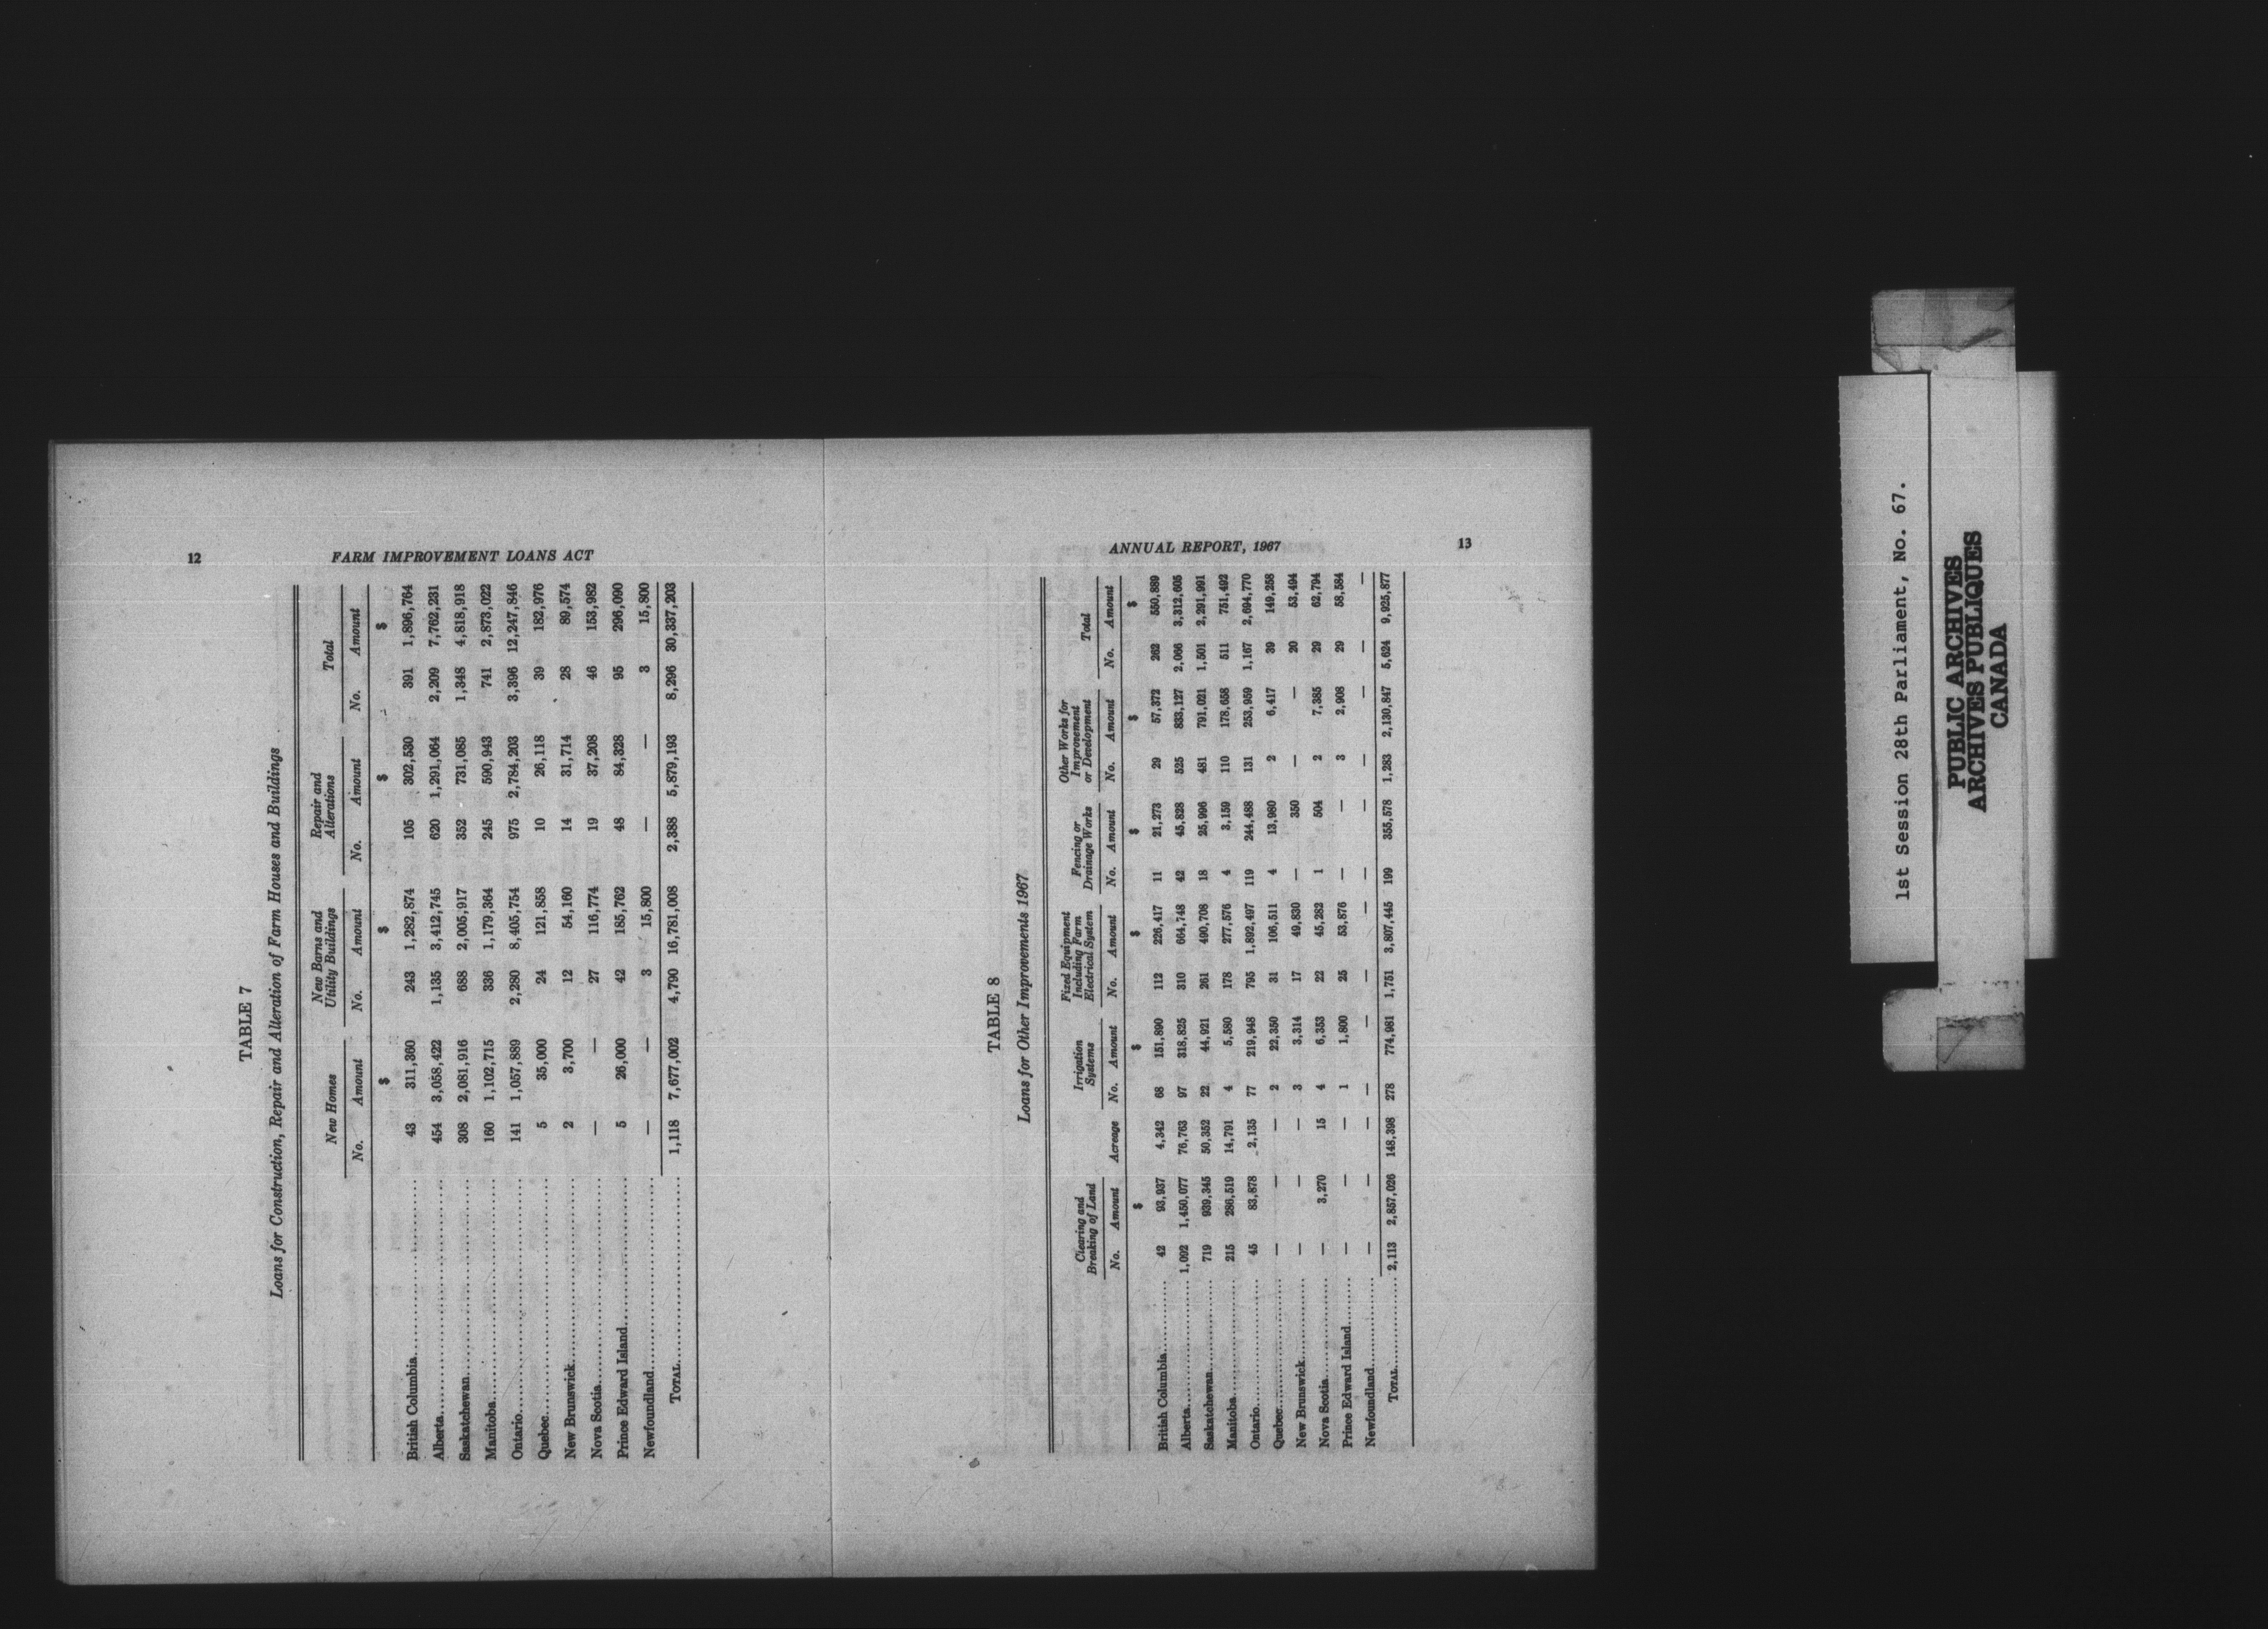 12
FARM IMPROVEMENT LOANS ACT
TABLE 7
Loans for Construction, Repair and Alteration of Farm Houses and Buildings
New Homes New Barns and Utility Buildings Repair and Alterations Total
No. Amount No. Amount No. Amount No. Amount
$ $ $ $
British Columbia 43 311,360 243 1,282,874 105 302,530 391 1,896,764
Alberta 454 3,058,422 1,135 3,412,745 620 1,291,064 2,209 7,762,231
Saskatchewan 308 2,081,916 688 2,005,917 352 731,085 1,348 4,818,918
Manitoba 160 1,102,715 336 1,179,364 245 590,943 741 2,873,022
Ontario 141 1,057,889 2,280 8,405,754 975 2,784,203 3,396 12,247,846
Quebec 5 35,000 24 121,858 10 26,118 39 182,976
New Brunswick 2 3,700 12 54,160 14 31,714 28 89,574
Nova Scotia — — 27 116,774 19 37,208 46 153,982
Prince Edward Island 5 26,000 42 185,762 48 84,328 95 296,090
Newfoundland — — 3 15,800 — — 3 15,800
TOTAL 1,118 7,677,002 4,790 16,781,008 2,388 5,879,193 8,296 30,337,203
ANNUAL REPORT, 1967
13
TABLE 8
Loans for Other Improvements 1967
Clearing and Breaking of Land Irrigation Systems Fixed Equipment Including Farm Electrical System Fencing or Drainage Works Other Works for Improvement or Development Total
No. Amount Acreage No. Amount No. Amount No. Amount No. Amount No. Amount
$ $ $ $ $ $
British Columbia 42 93,937 4,342 68 151,890 112 226,417 11 21,273 29 57,372 262 550,889
Alberta 1,092 1,450,077 76,763 97 318,825 310 664,748 42 45,828 525 833,127 2,066 3,312,605
Saskatchewan 719 939,345 50,352 22 44,921 261 490,708 18 25,996 481 791,021 1,501 2,291,991
Manitoba 215 286,519 14,791 4 5,580 178 277,576 4 3,159 110 178,658 511 751,492
Ontario 45 83,878 2,135 77 219,948 795 1,892,497 119 244,488 131 253,959 1,167 2,694,770
Quebec — — — 2 22,350 31 106,511 4 13,980 2 6,417 39 149,258
New Brunswick — — — 3 3,314 17 49,830 — 350 — — 20 53,494
Nova Scotia — 3,270 15 4 6,353 22 45,282 1 504 2 7,385 29 62,794
Prince Edward Island — — — 1 1,800 25 53,876 — — 3 2,908 29 58,584
Newfoundland — — — — — — — — — — — — —
TOTAL 2,113 2,857,026 148,398 278 774,981 1,751 3,807,445 199 355,578 1,283 2,130,847 5,624 9,925,877
1st Session 28th Parliament, No. 67.
PUBLIC ARCHIVES
ARCHIVES PUBLIQUES
CANADA